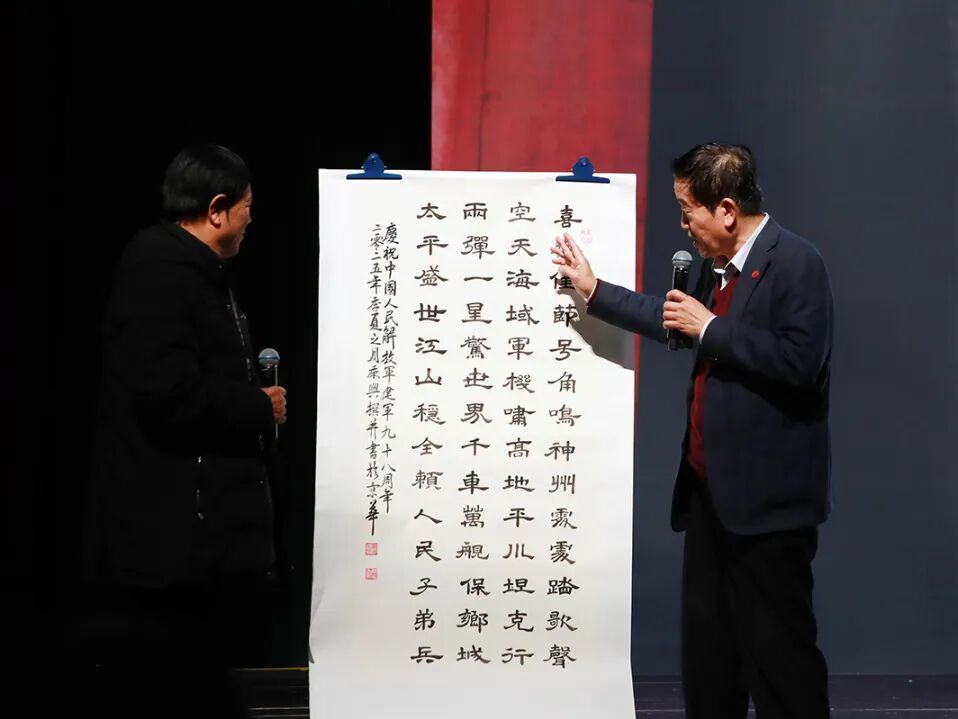 喜佳節号角鳴神州處處踏歌聲
空天海域軍機嘯高地平川坦克行
兩彈一星驚世界千車萬艦保鄉城
太平盛世江山穩全賴人民子弟兵
慶祝中國人民解放軍建軍九十八周年
二零二五年季夏之月乘興撰并書於京華